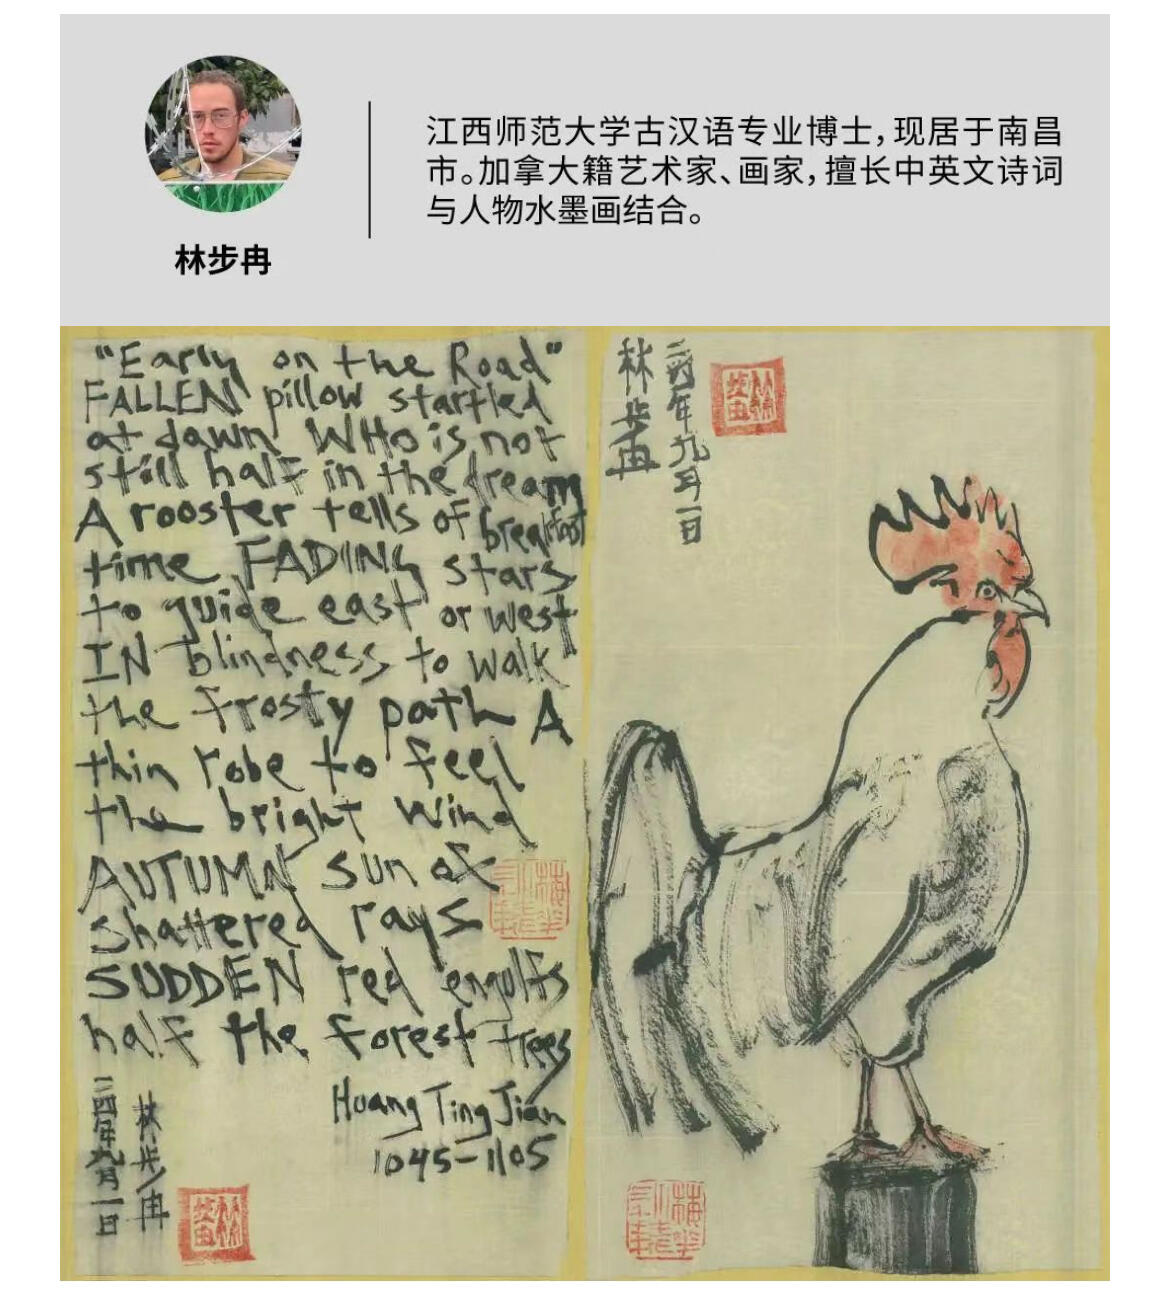 江西师范大学古汉语专业博士，现居于南昌
市。加拿大籍艺术家、画家，擅长中英文诗词
与人物水墨画结合。
林步冉
"Early on the Road"
FALLEN pillow startled
at dawn WHO is not
still half in the dream
A rooster tells of breakfast
time FADING stars
to guide east or west
IN blindness to walk
the frosty path A
thin robe to feel
the bright wind
AUTUMN sun of
shattered rays
SUDDEN red engulfs
half the forest trees
Huang Ting Jian
1045-1105
林步冉
年九月一日
林步冉
年九月一日